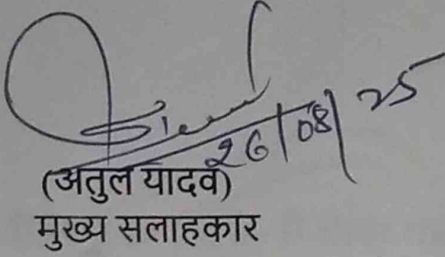 26/08/25
(अतुल यादव)
मुख्य सलाहकार